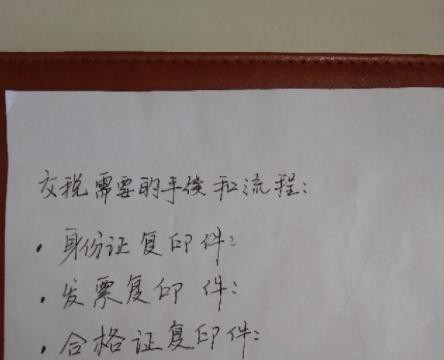 交税需要的手续和流程：
· 身份证复印件：
· 发票复印件：
· 合格证复印件：